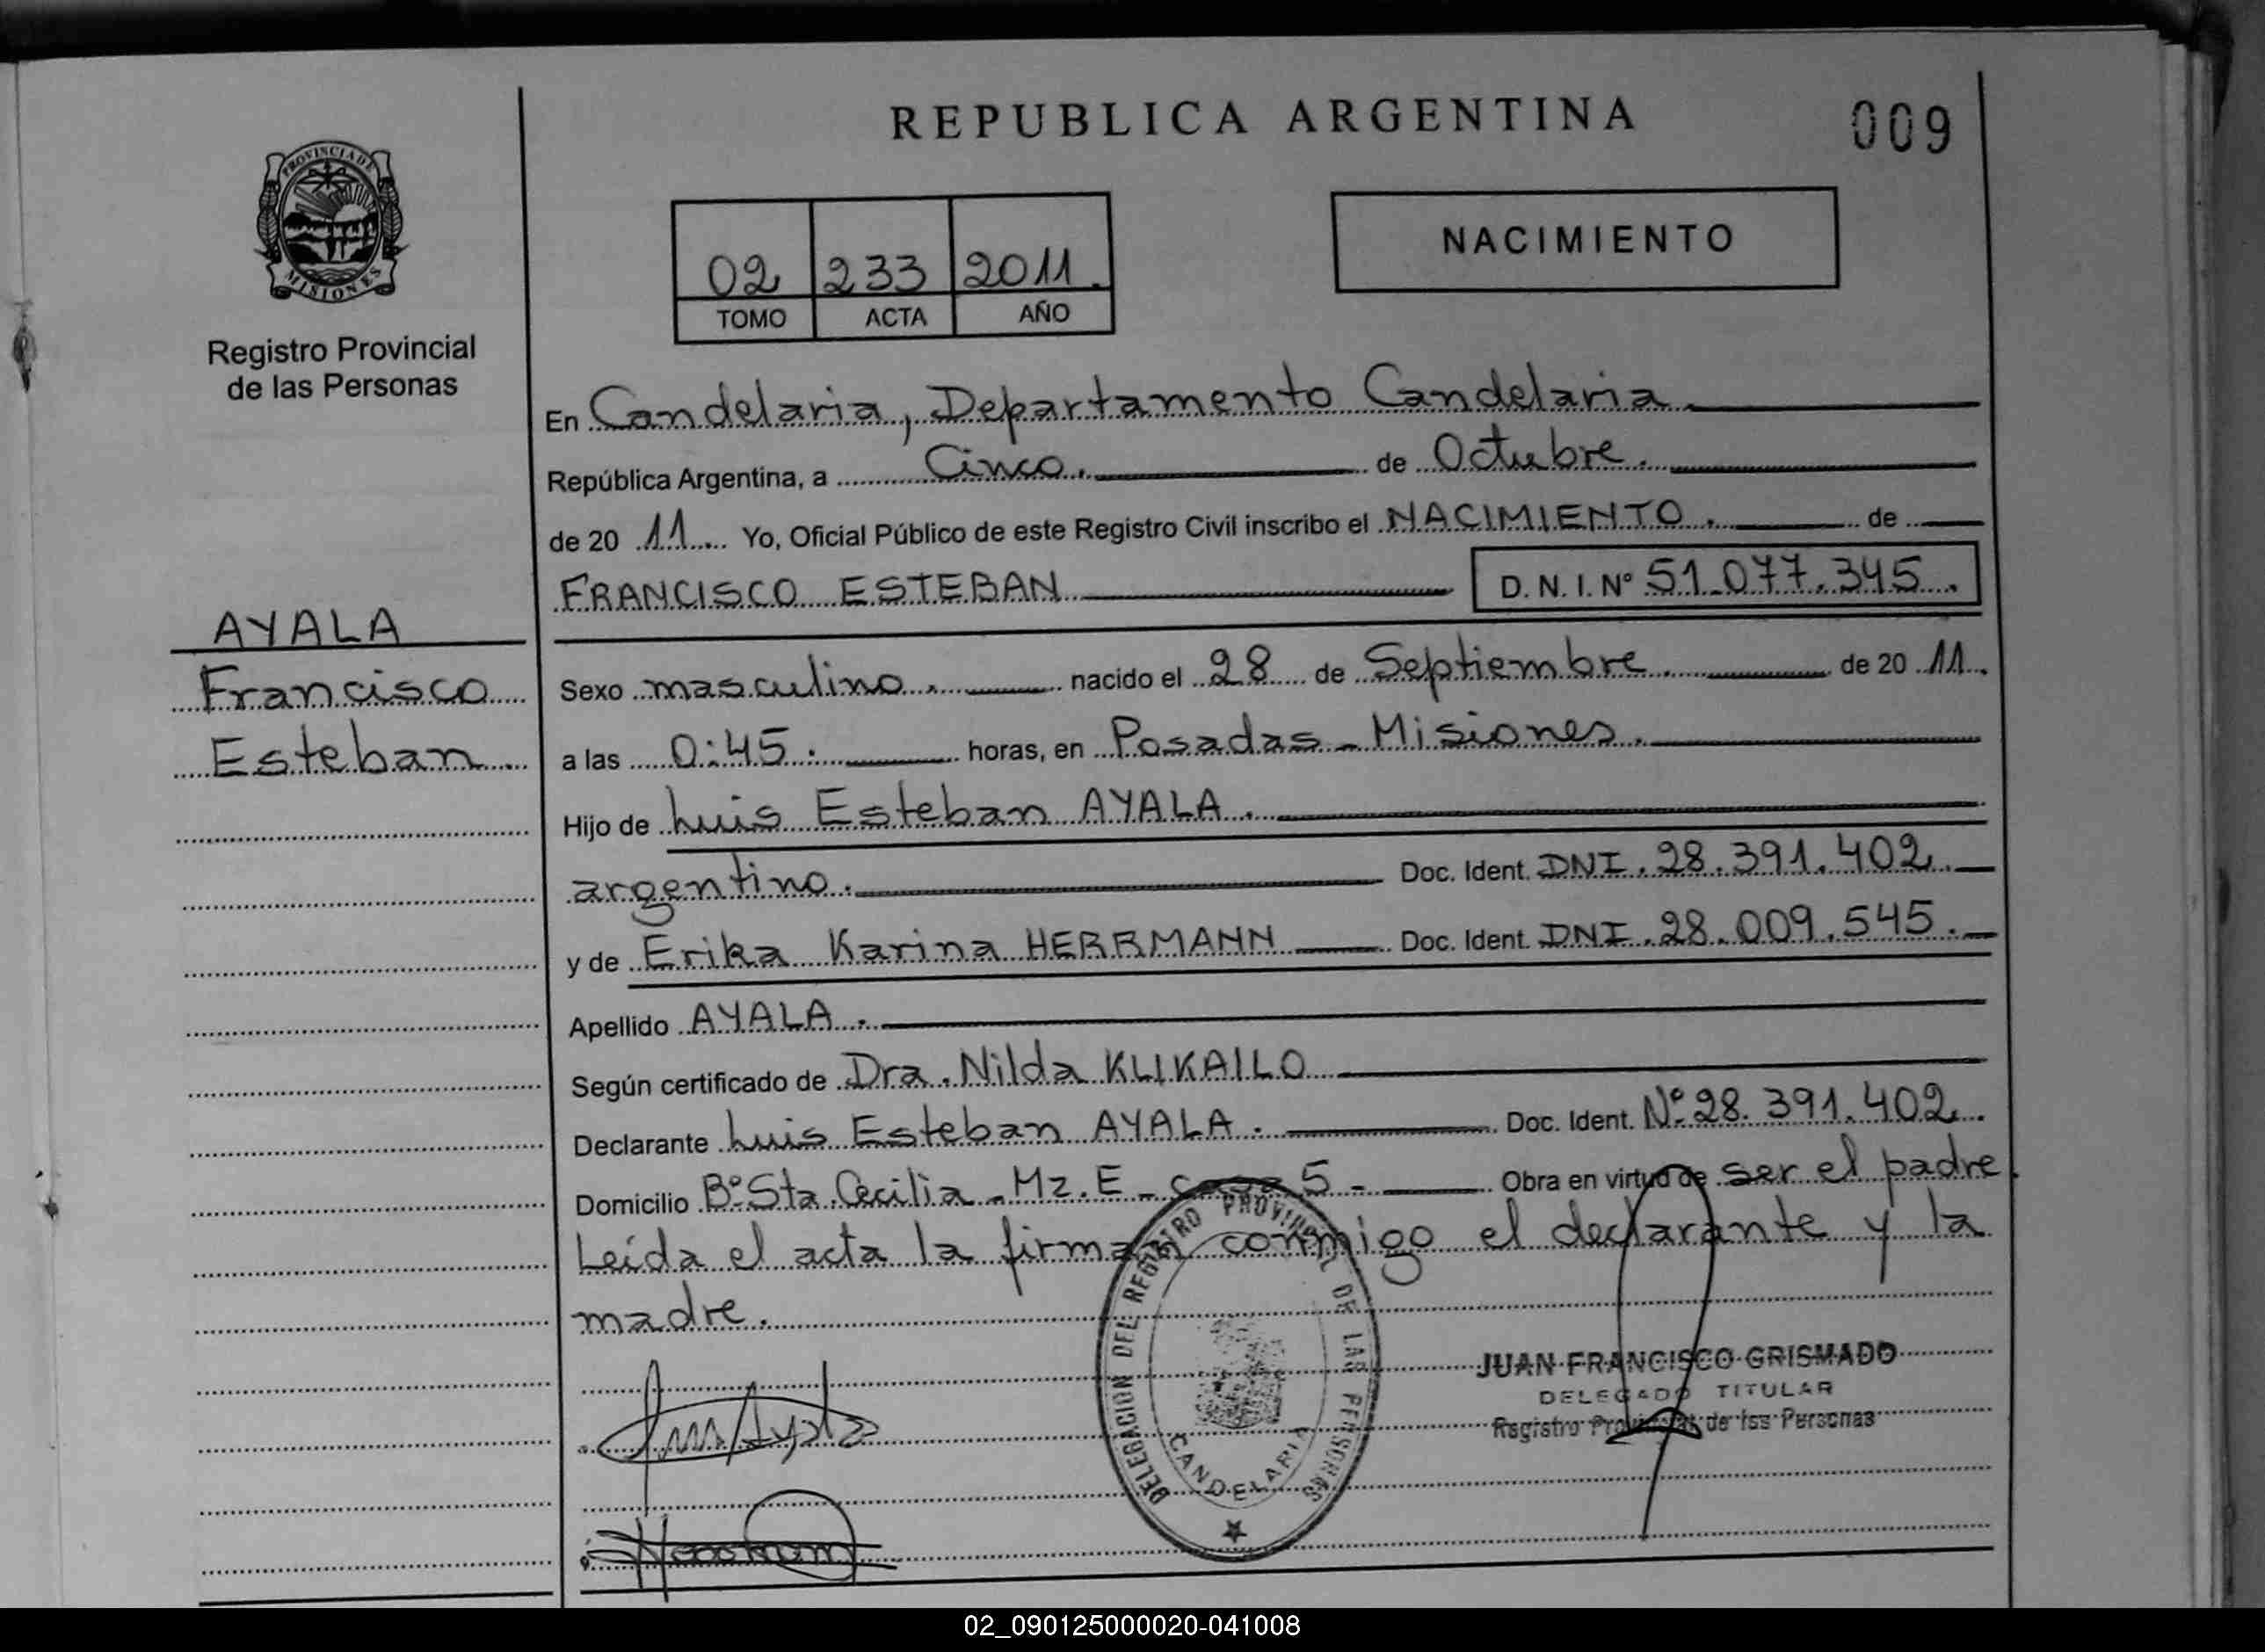 REPUBLICA ARGENTINA
009
PROVINCIA DE
MISIONES
Registro Provincial
de las Personas
02 233 2011.
TOMO ACTA AÑO
NACIMIENTO
En Candelaria, Departamento Candelaria.
República Argentina, a Cinco. de Octubre.
de 20 11. Yo, Oficial Público de este Registro Civil inscribo el NACIMIENTO. de
FRANCISCO ESTEBAN D. N. I. Nº 51.077.345.
AYALA
Francisco
Esteban.
Sexo masculino. nacido el 28 de Septiembre. de 20 11.
a las 0:45. horas, en Posadas - Misiones.
Hijo de Luis Esteban AYALA.
argentino. Doc. Ident. DNI. 28.391.402.
y de Erika Karina HERRMANN Doc. Ident. DNI. 28.009.545.
Apellido AYALA.
Según certificado de Dra. Nilda KLIKAILO
Declarante Luis Esteban AYALA. Doc. Ident. Nº 28.391.402.
Domicilio Bº Sta. Cecilia - Mz. E - casa 5 - Obra en virtud de ser el padre.
Leída el acta la firman conmigo el declarante y la
madre.
DELEGACION DEL REGISTRO PROVINCIAL DE LAS PERSONAS
CANDELARIA
JUAN FRANCISCO GRISMADO
DELEGADO TITULAR
Registro Provincial de las Personas
Luis Ayala
02_090125000020-041008